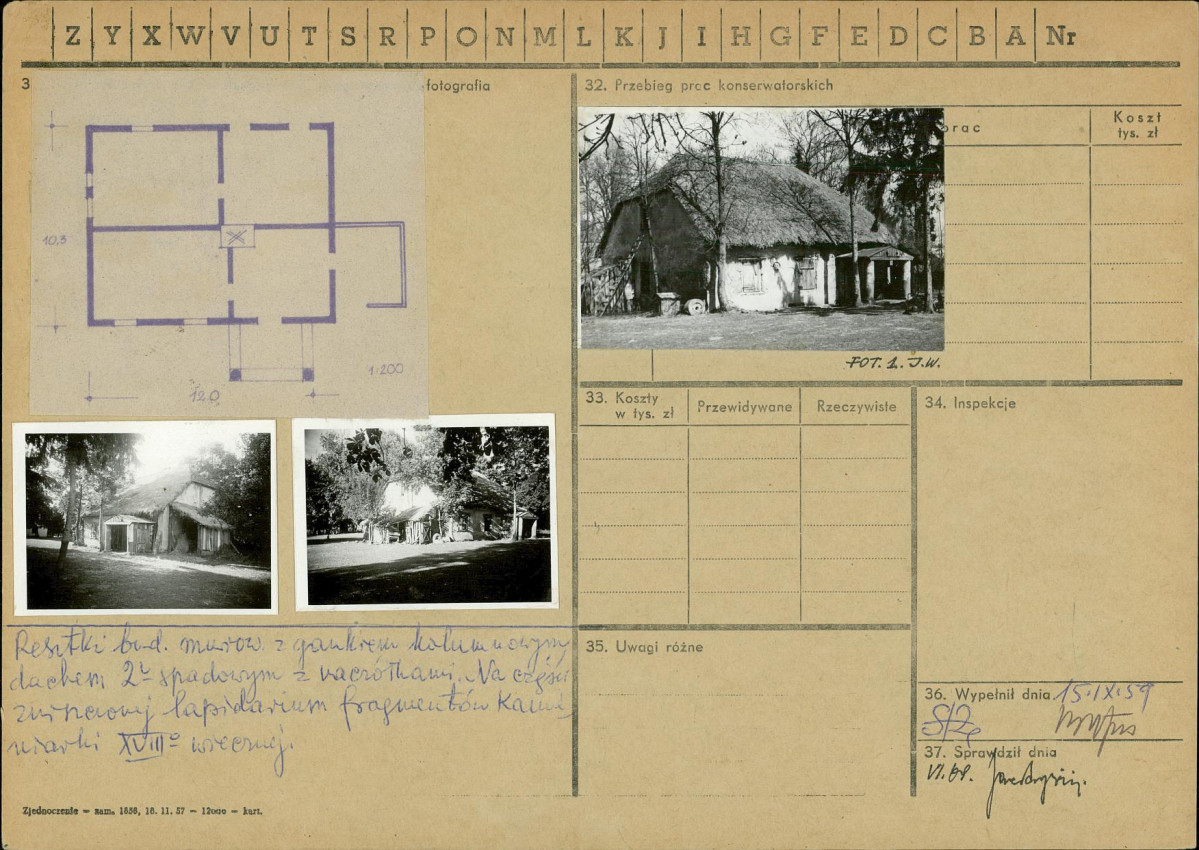 Z Y X W V U T S R P O N M L K J I H G F E D C B A Nr
3
fotografia
10,3
12,0
1:200
Resztki bud. murow. z gankiem kolumnowym
dachem 2 spadowym z naczółkami. Na części
zniszczonej lapidarium fragmentów kamie
niarki XVIII wiecznej.
Zjednoczenie — zam. 1856, 16. 11. 57 — 12000 — kart.
32. Przebieg prac konserwatorskich
prac
Koszt
tys. zł
FOT. 1. J.W.
33. Koszty
w tys. zł
Przewidywane
Rzeczywiste
34. Inspekcje
35. Uwagi różne
36. Wypełnił dnia 15.IX.59
37. Sprawdził dnia
VI.68.